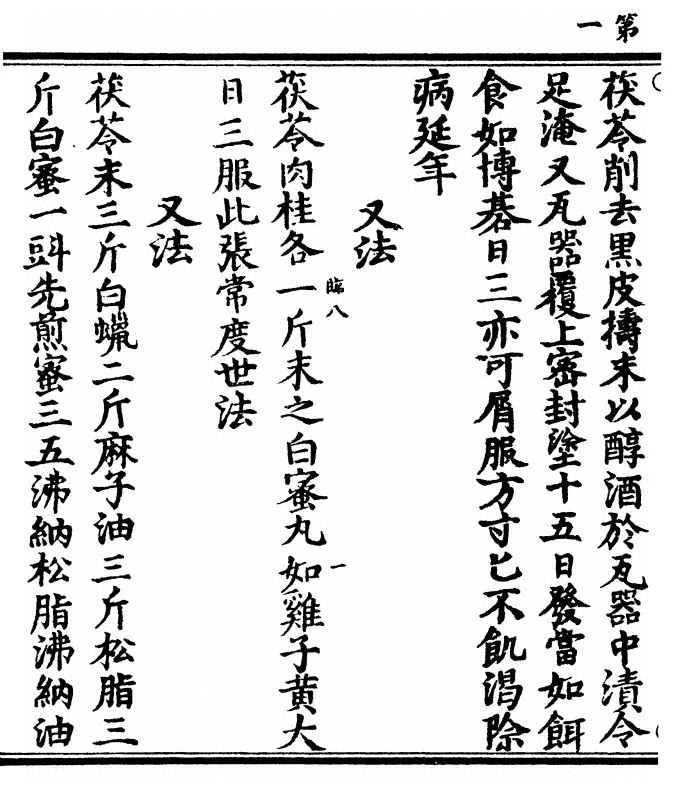 第一
茯苓削去黑皮擣末以醇酒於瓦器中漬令
足淹又瓦器覆上密封塗十五日發當如餌
食如博碁日三亦可屑服方寸匕不飢渴除
病延年
又法
臨八 一
茯苓肉桂各一斤末之白蜜丸如雞子黄大
日三服此張常度世法
又法
茯苓末三斤白蝋二斤麻子油三斤松脂三
斤白蜜一㪷先煎蜜三五沸納松脂沸納油